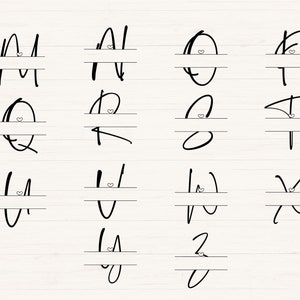 M N O P
Q R S T
U V W X
y z